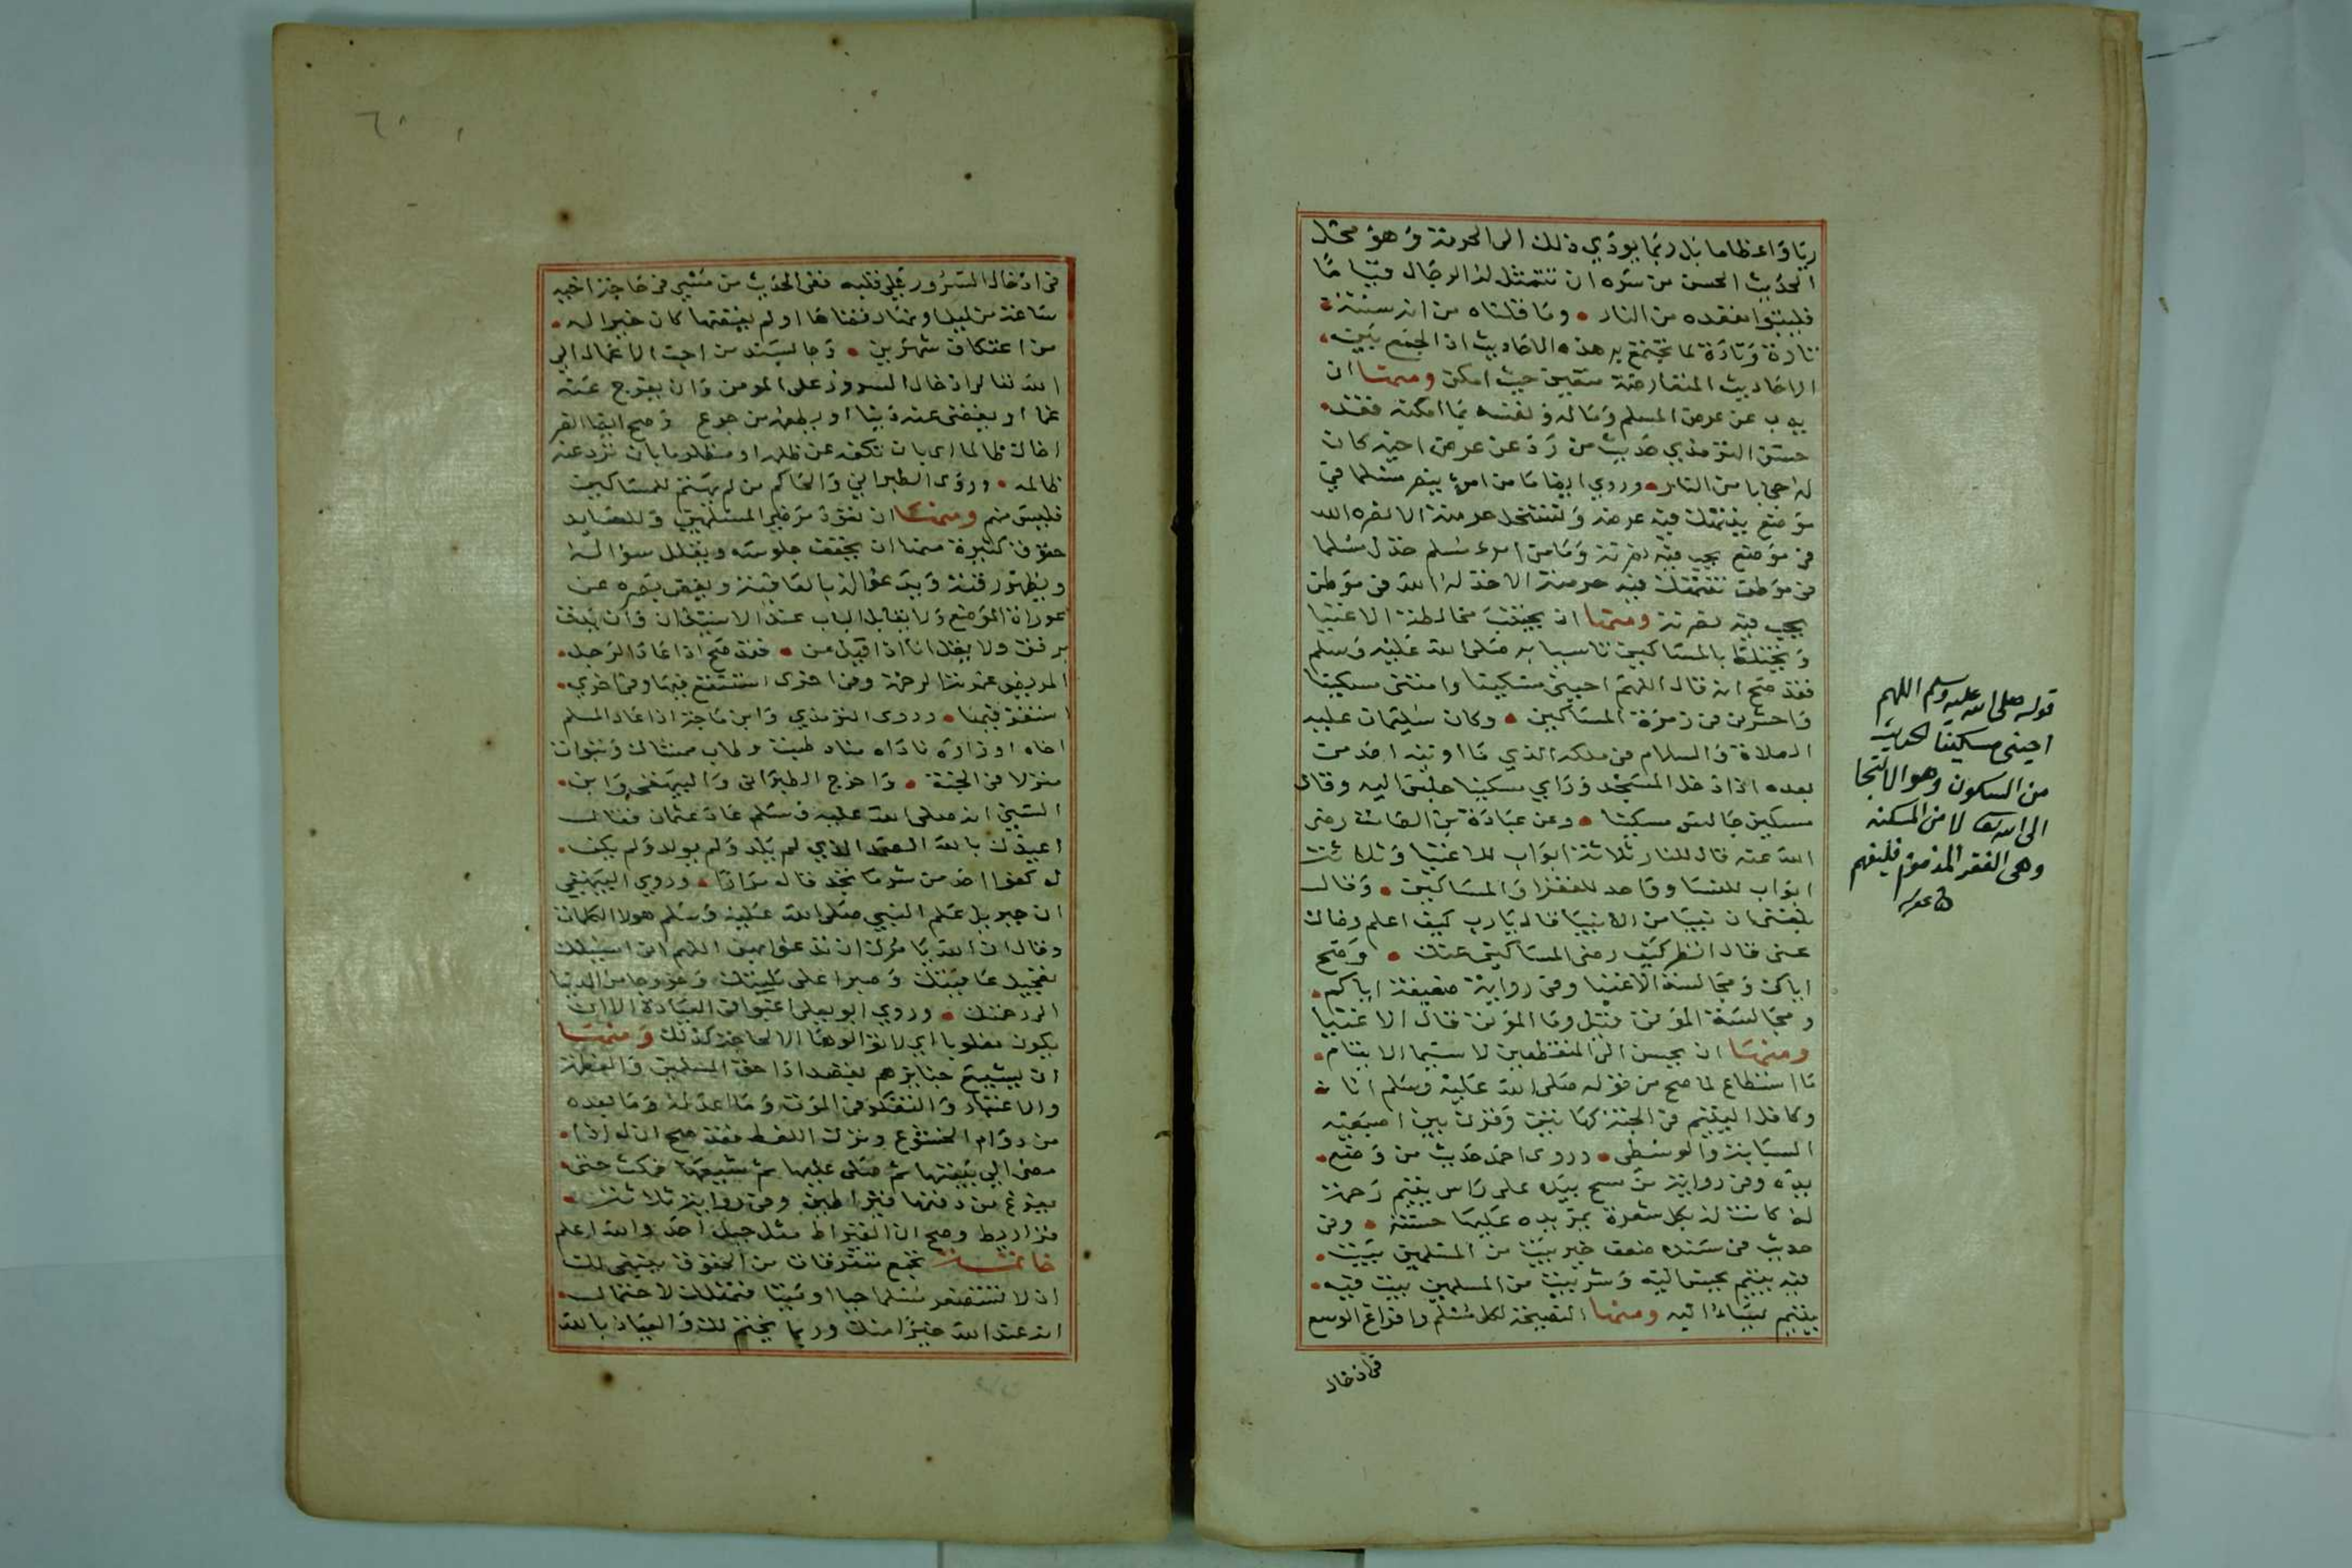 ريا واعظاما بل ربما يودي ذلك الى الحرمة وهو محمل
الحديث الحسن من سره ان تتمثل له الرجال قياما
فليتبوا مقعده من النار • وما قلناه من انه سنة
تارة وتارة لما تجتمع به هذه الاحاديث اذ الجمع بين
الاحاديث المتعارضة متعين حيث امكن ومنها ان
يذب عن عرض المسلم وماله ونفسه بما امكنه فقد
حسن الترمذي حديث من رد عن عرض اخيه كان
له حجابا من النار • وروي ايضا ما من امرئ ينصر مسلما في
موضع ينتهك فيه عرضه وتستحل حرمته الا نصره الله
في موضع يحب فيه نصرته وما من امرء مسلم خذل مسلما
في موطن تنتهك فيه حرمته الا خذله الله في موطن
يحب فيه نصرته ومنها ان يجتنب مخالطة الاغنيا
ويختلط بالمساكين تاسيا به صلى الله عليه وسلم
فقد صح انه قال اللهم احيني مسكينا وامتني مسكينا
واحشرني في زمرة المساكين • وكان سليمان عليه
الصلاة والسلام في ملكه الذي ما اوتيه احد من
بعده اذا دخل المسجد وراي مسكينا جلس اليه وقال
مسكين جالس مسكينا • وعن عبادة بن الصامت رضي
الله عنه قال للنار ثلاثة ابواب للاغنيا وثلاثة
ابواب للنسا وواحد للفقرا والمساكين • وقال
بلغني ان نبيا من الانبيا قال يارب كيف اعلم رضاك
عني قال انظر كيف رضى المساكين عنك • وصح
اياك ومجالسة الاغنيا وفي رواية ضعيفة اياكم
ومجالسة الموتى قيل وما الموتى قال الاغنيا
ومنها ان يحسن الى المنقطعين لا سيما الايتام
ما استطاع لما صح من قوله صلى الله عليه وسلم انا
وكافل اليتيم في الجنة كهاتين وقرن بين اصبعيه
السبابة والوسطى • وروى احمد حديث من وضع
يده وفي رواية من مسح بيده على راس يتيم رحمة
له كانت له بكل شعرة يمر يده عليها حسنة • وفي
حديث في سنده ضعف خير بيت من المسلمين بيت
فيه يتيم يحسن اليه وشر بيت من المسلمين بيت فيه
يتيم يساء اليه ومنها النصيحة لكل مسلم وافراغ الوسع
في ادخال
قوله صلى الله عليه وسلم اللهم
احيني مسكينا الحديث
من السكون وهو الالتجا
الى الله تعا لا من المسكنة
وهي الفقر المذموم فليفهم
في ادخال السرور على قلبه ففي الحديث من مشى في حاجة اخيه
ساعة من ليل او نهار قضاها او لم يقضها كان خيرا له
من اعتكاف شهرين • وجا بسند من احب الاعمال الى
الله تعالى ادخال السرور على المومن وان يفرج عنه
غما او يقضي عنه دينا او يطعمه من جوع وصح ايضا انصر
اخاك ظالما اي بان تكفه عن ظلمه او مظلوما بان ترد عنه
ظالمه • وروى الطبراني والحاكم من لم يهتم للمسلمين
فليس منهم ومنها ان يعود مرضى المسلمين وللعايد
حقوق كثيرة منها ان يخفف جلوسه ويقلل سواله
ويظهر رقته ويدعو له بالعافية ويغض بصره عن
عورات الموضع ولا يقابل الباب عند الاستيذان وان يدق
برفق ولا يقل انا اذا قيل من • فقد صح اذا عاد الرجل
المريض غمرته الرحمة وفي اخرى استنقع فيها وفي اخرى
استقر فيها • وروى الترمذي وابن ماجة اذا عاد المسلم
اخاه او زاره ناداه مناد طبت وطاب ممشاك وتبوات
منزلا في الجنة • واخرج الطبراني والبيهقي وابن
السني انه صلى الله عليه وسلم عاد عثمان فقال
اعيذك بالله الصمد الذي لم يلد ولم يولد ولم يكن
له كفوا احد من شر ما تجد قاله مرارا • وروى البيهقي
ان جبريل علم النبي صلى الله عليه وسلم هولا الكلمات
وقال ان الله يامرك ان تدعو بهن اللهم اني اسئلك
تعجيل عافيتك وصبرا على بليتك وخروجا من الدنيا
الى رحمتك • وروي ابو يعلى اغبوا في العيادة الا ان
يكون مغلوبا اي لا تو الوها الا لحاجة كذلك ومنها
ان يشيع جنايزهم بقصد اداء حق المسلمين والعظة
والاعتبار والتفكر في الموت وما اعد له وما بعده
من دوام الخشوع وترك اللغط فقد صح ان له اذا
مضى الى بيتها ثم صلى عليها ثم شيعها فمكث حتى
يفرغ من دفنها قيراطين وفي رواية ثلاثة
قراريط وصح ان القيراط مثل جبل احد والله اعلم
خاتمة تجمع متفرقات من الحقوق ينبغي لك
ان لا تستصغر مسلما حيا او ميتا فتهلك لاحتمال
انه عند الله خيرا منك وربما يختم لك والعياذ بالله